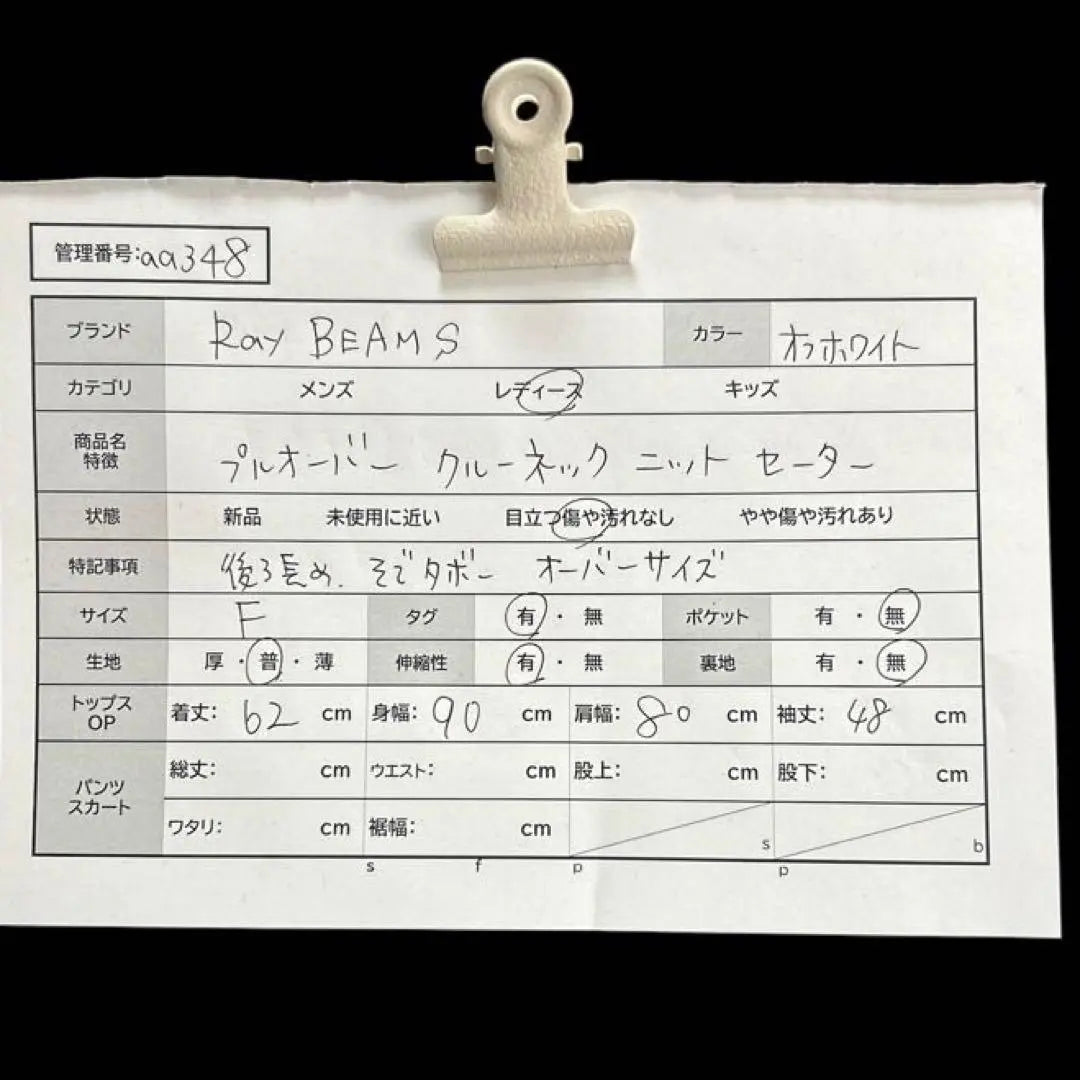 管理番号:aa348
ブランド Ray BEAMS カラー オフホワイト
カテゴリ メンズ レディース キッズ
商品名 特徴 プルオーバー クルーネック ニット セーター
状態 新品 未使用に近い 目立つ傷や汚れなし やや傷や汚れあり
特記事項 後ろ長め、そでタボー オーバーサイズ
サイズ F タグ 有・無 ポケット 有・無
生地 厚・普・薄 伸縮性 有・無 裏地 有・無
トップス OP 着丈: 62 cm 身幅: 90 cm 肩幅: 80 cm 袖丈: 48 cm
パンツ スカート 総丈: cm ウエスト: cm 股上: cm 股下: cm
ワタリ: cm 裾幅: cm s b
s f p p